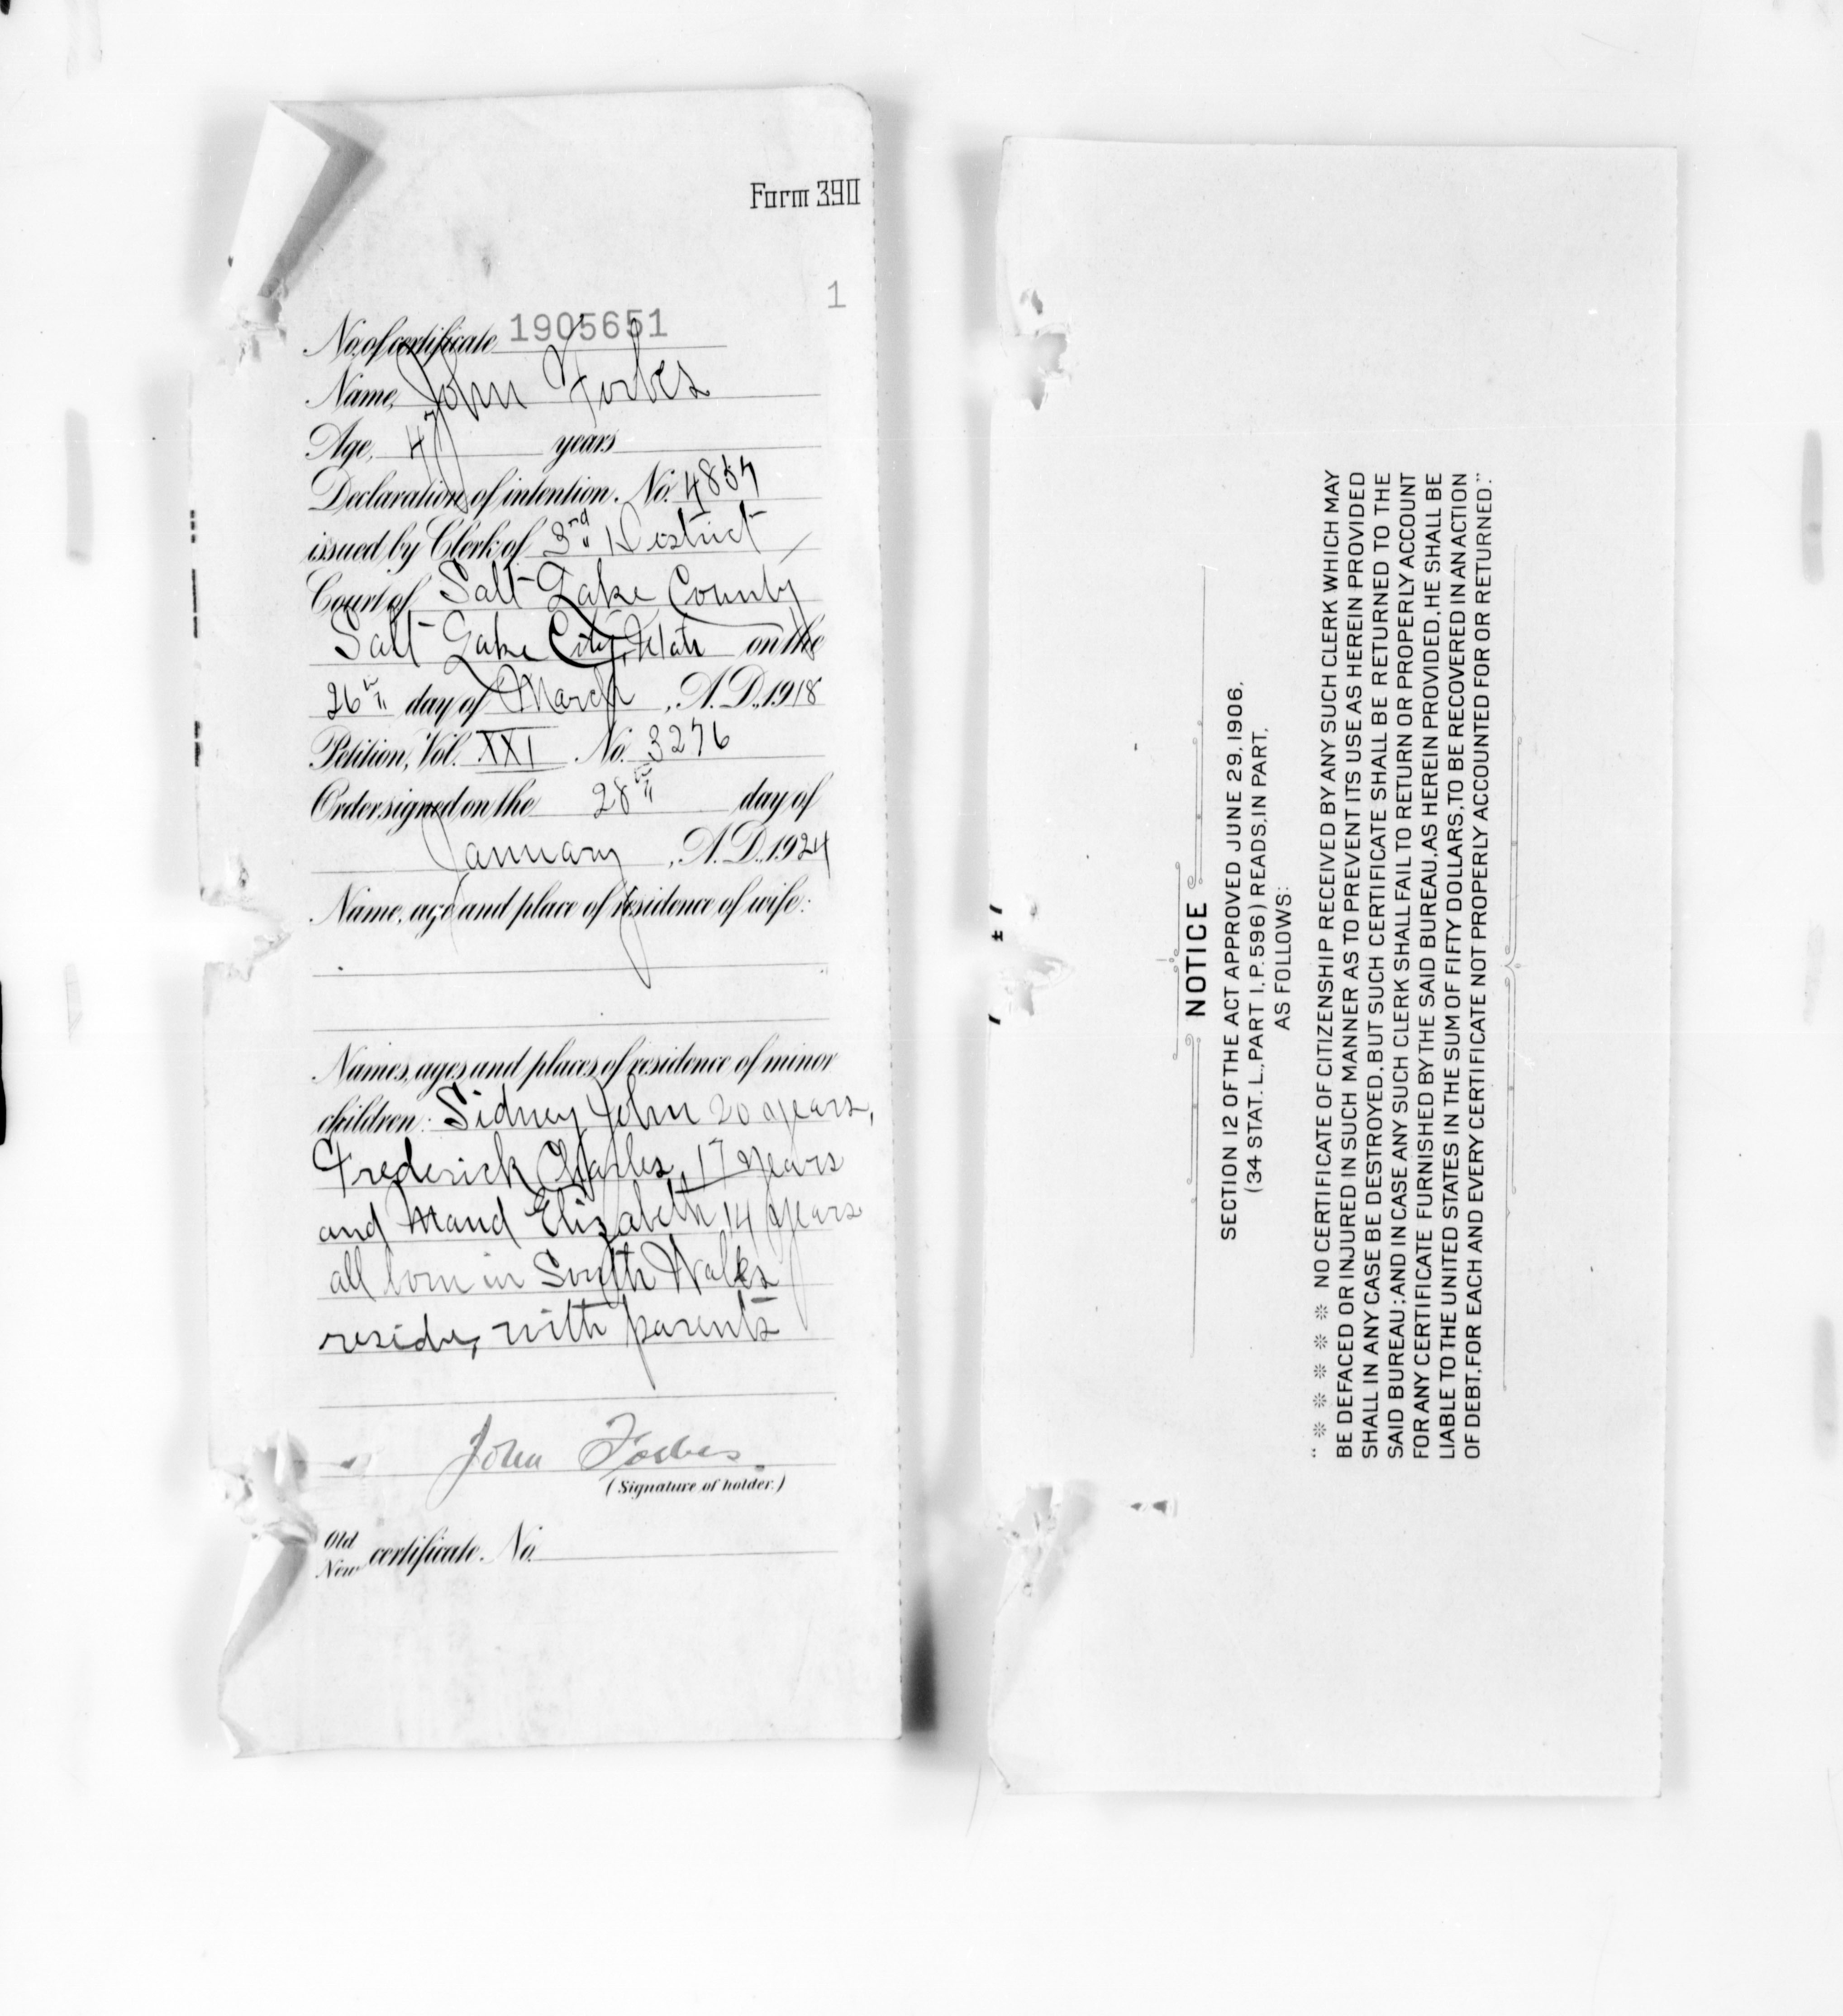 Form 390
1
No. of certificate 1905651
Name, John Forbes
Age, 47 years
Declaration of intention. No. 4857
issued by Clerk of 3rd District
Court of Salt Lake County
Salt Lake City, Utah on the
26th day of March, A.D., 1918
Petition, Vol. XXI No. 3276
Order signed on the 28th day of
January, A.D., 1924
Name, age and place of residence of wife:
Names, ages and places of residence of minor
children: Sidney John 20 years,
Frederick Charles, 17 years
and Maud Elizabeth 14 years
all born in South Wales
reside, with parents
John Forbes.
(Signature of holder.)
Old
New certificate. No.
NOTICE
SECTION 12 OF THE ACT APPROVED JUNE 29, 1906,
(34 STAT. L., PART 1, P. 596) READS, IN PART,
AS FOLLOWS:
" * * * * * * NO CERTIFICATE OF CITIZENSHIP RECEIVED BY ANY SUCH CLERK WHICH MAY
BE DEFACED OR INJURED IN SUCH MANNER AS TO PREVENT ITS USE AS HEREIN PROVIDED
SHALL IN ANY CASE BE DESTROYED, BUT SUCH CERTIFICATE SHALL BE RETURNED TO THE
SAID BUREAU; AND IN CASE ANY SUCH CLERK SHALL FAIL TO RETURN OR PROPERLY ACCOUNT
FOR ANY CERTIFICATE FURNISHED BY THE SAID BUREAU, AS HEREIN PROVIDED, HE SHALL BE
LIABLE TO THE UNITED STATES IN THE SUM OF FIFTY DOLLARS, TO BE RECOVERED IN AN ACTION
OF DEBT, FOR EACH AND EVERY CERTIFICATE NOT PROPERLY ACCOUNTED FOR OR RETURNED."